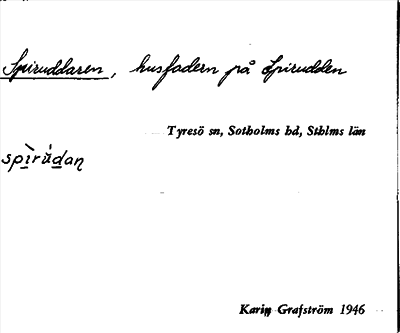 Spiruddaren, husfadern på Spirudden
Tyresö sn, Sotholms hd, Sthlms län
spìrúdaṇ
Karin Grafström 1946